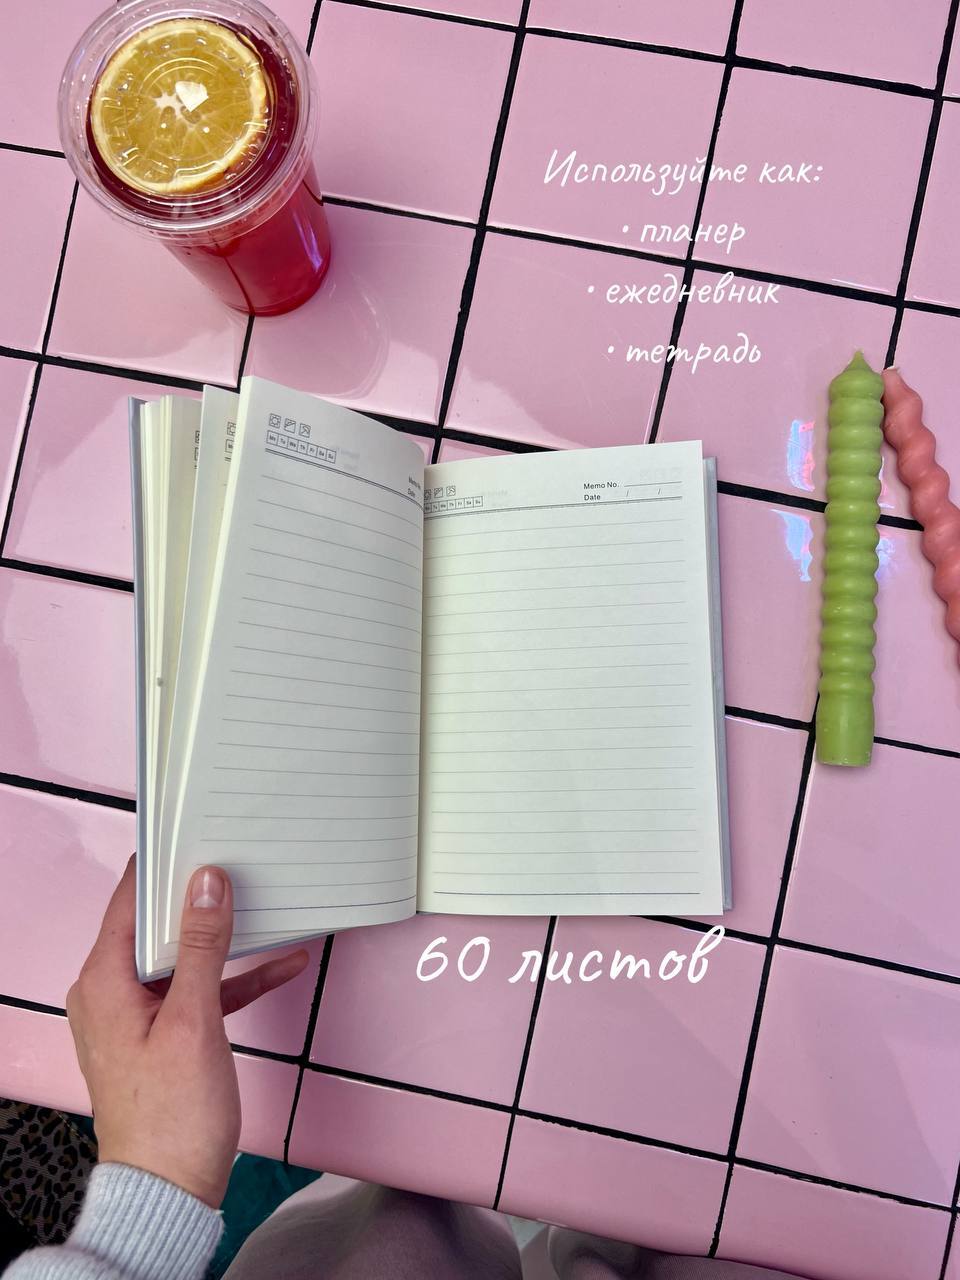 Используйте как:
• планер
• ежедневник
• тетрадь
Mo Tu We Th Fr Sa Su
Memo No.
Date
Mo Tu We Th Fr Sa Su
Memo No.
Date / /
60 листов